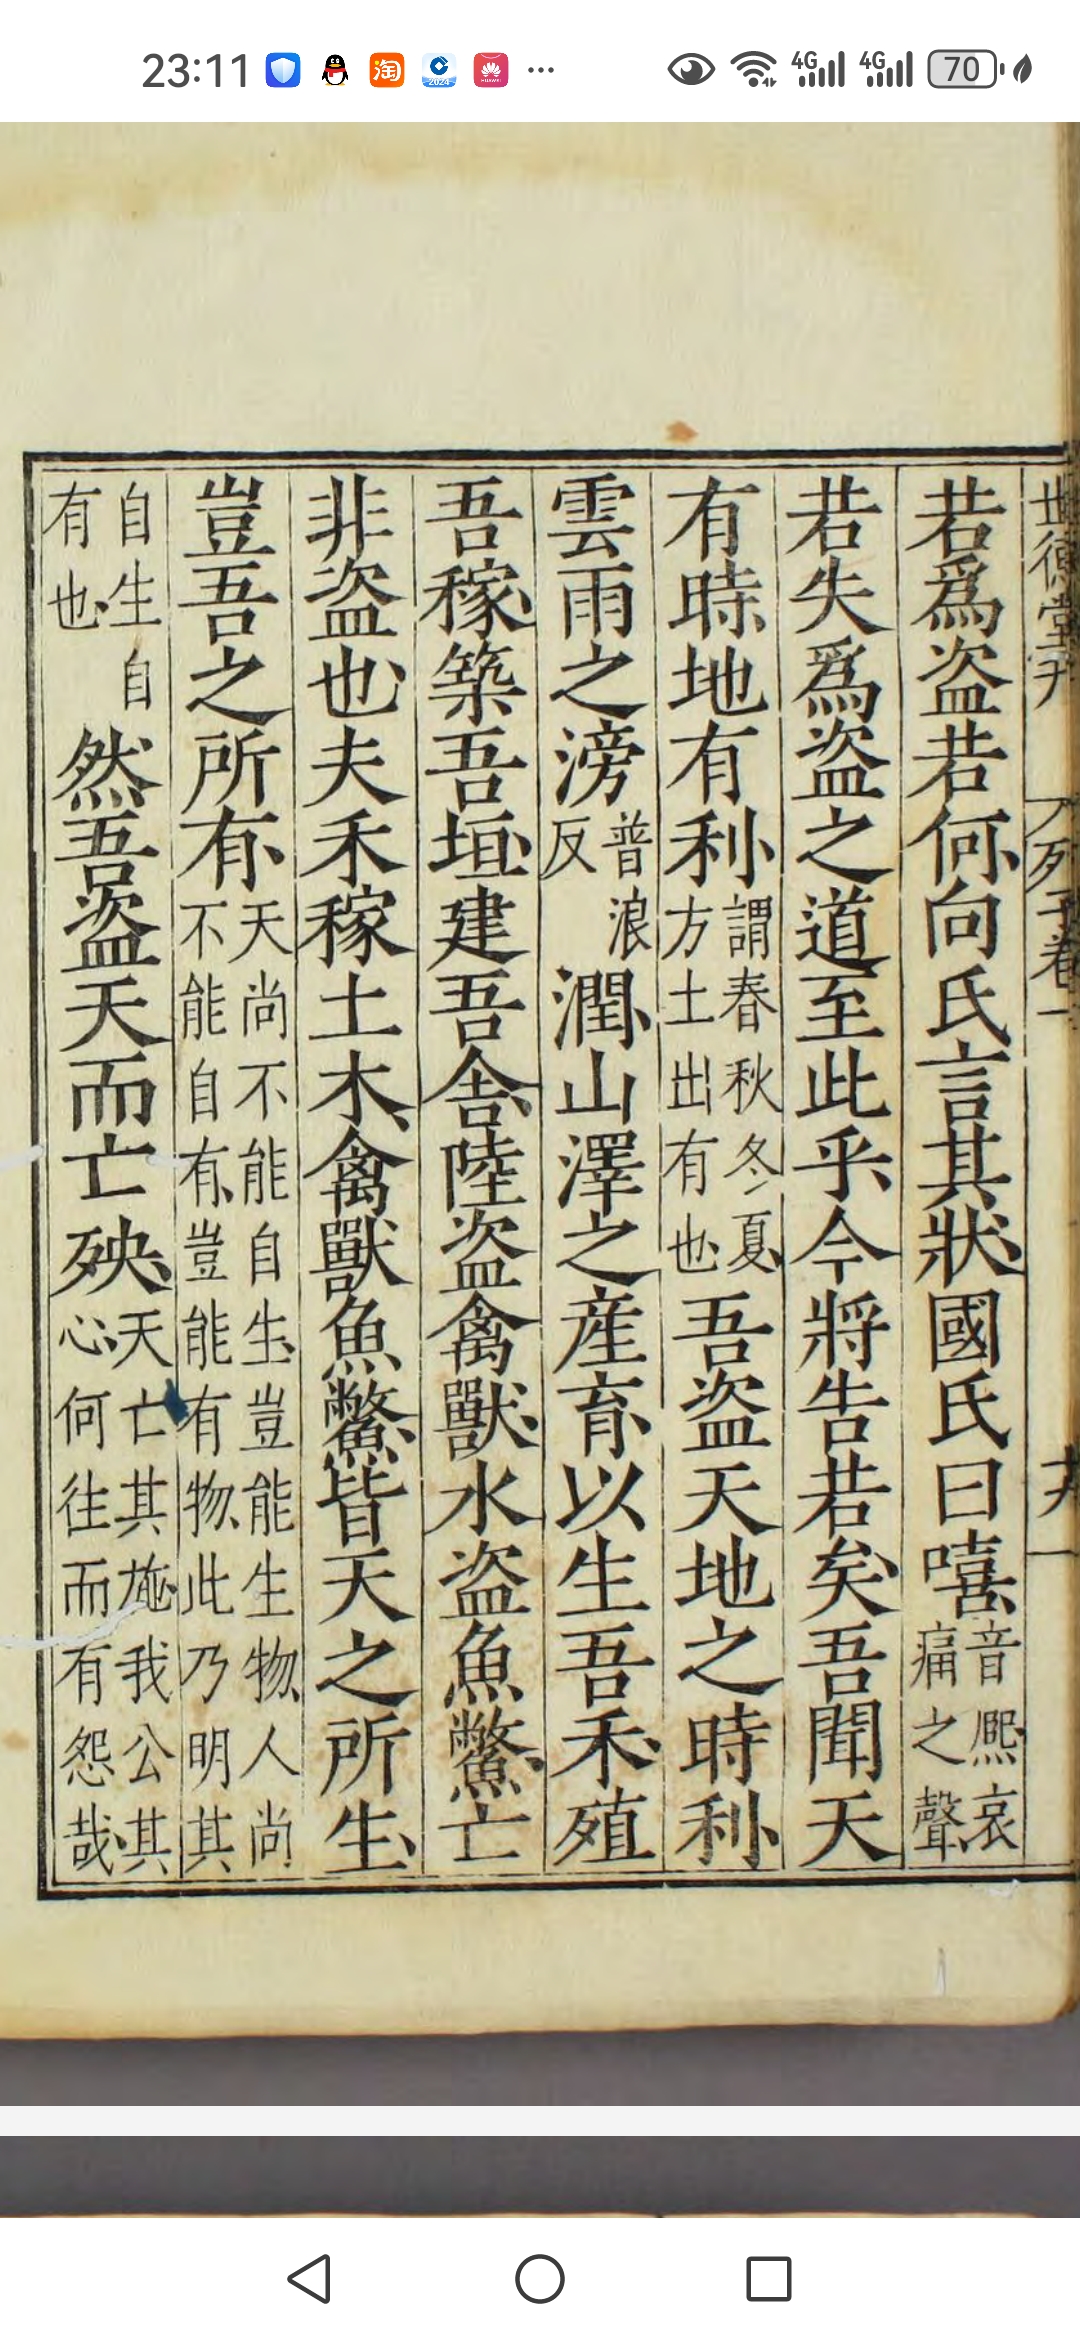 23:11
4G 4G 70
世德堂刊
列子卷一
十八
若爲盜若何向氏言其狀國氏曰嘻音熈哀痛之聲
若失爲盜之道至此乎今將告若矣吾聞天
有時地有利謂春秋冬夏方土出有也吾盜天地之時利
雲雨之滂普浪反潤山澤之産育以生吾禾殖
吾稼築吾垣建吾舍陸盜禽獸水盜魚鱉亡
非盜也夫禾稼土木禽獸魚鱉皆天之所生
豈吾之所有天尚不能自生豈能生物人尚不能自有豈能有物此乃明其
自生自有也然吾盜天而亡殃天亡其施我公其心何往而有怨哉